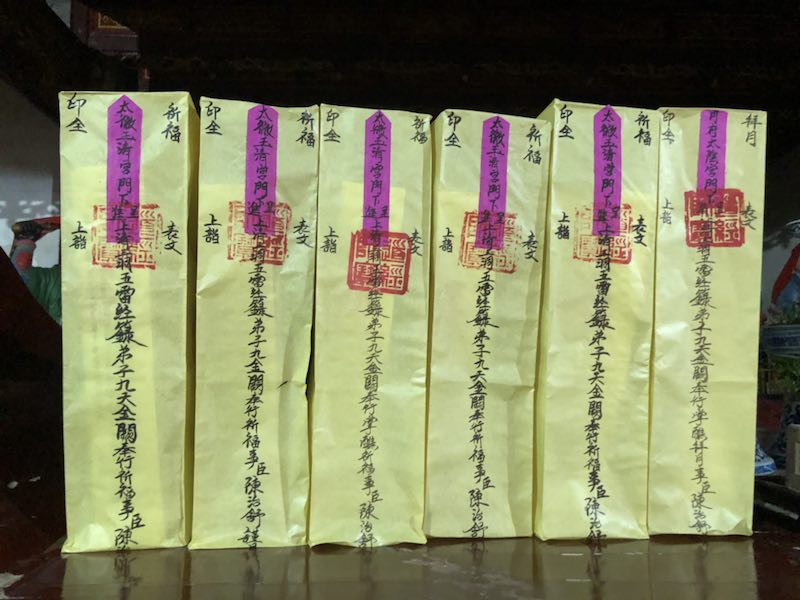 祈福
表文
太微玉清宮門下
呈進
上清三洞五雷經籙弟子九天金闕奉行祈福事臣陳
印全
上詣
祈福
表文
太微玉清宮門下
呈進
上清三洞五雷經籙弟子九天金闕奉行祈福事臣陳治舒謹
印全
上詣
祈福
表文
太微玉清宮門下
呈進
上清三洞五雷經籙弟子九天金闕奉行掌醮祈福事臣陳治舒
印全
上詣
祈福
表文
太微玉清宮門下
呈進
上清三洞五雷經籙弟子九天金闕奉行祈福事臣陳治舒
印全
上詣
祈福
表文
太微玉清宮門下
呈進
上清三洞五雷經籙弟子九天金闕奉行祈福事臣陳治舒
印全
上詣
拜月
表文
月府太陰宮門下
呈進
五雷經籙弟子九天金闕奉行掌醮拜月事臣陳治舒
印全
上詣